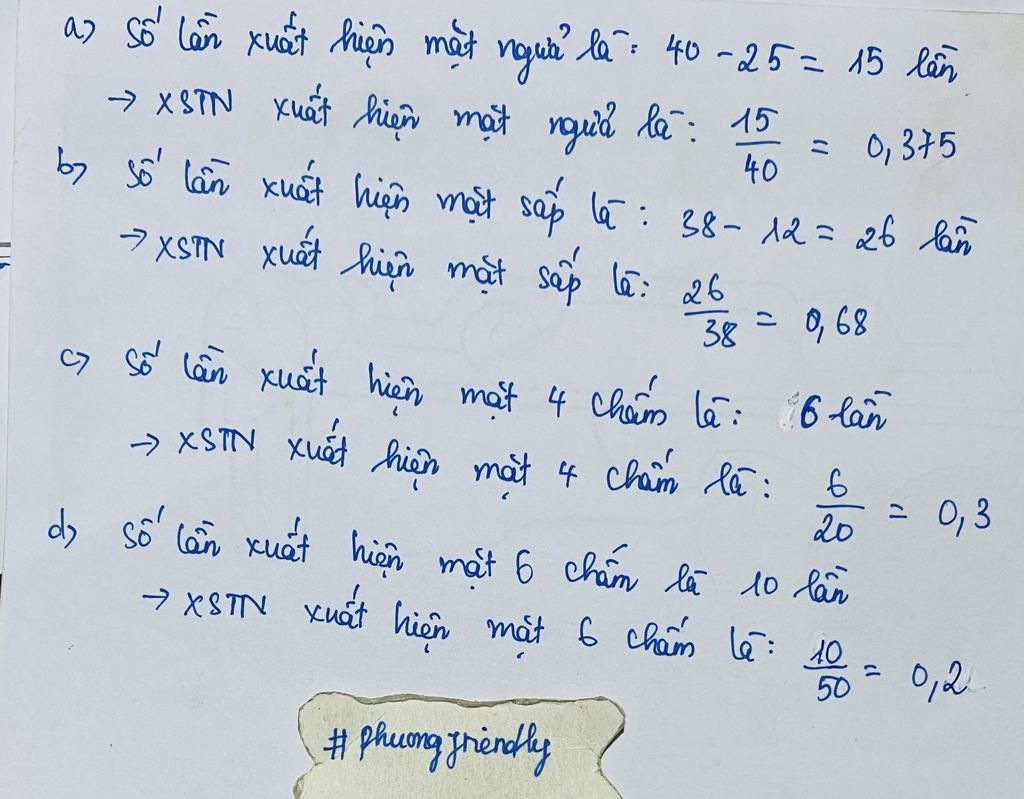 a) Số lần xuất hiện mặt ngửa là: 40 - 25 = 15 lần
→ XSTN xuất hiện mặt ngửa là: 15/40 = 0,375
b) Số lần xuất hiện mặt sấp là: 38 - 12 = 26 lần
→ XSTN xuất hiện mặt sấp là: 26/38 = 0,68
c) Số lần xuất hiện mặt 4 chấm là: 6 lần
→ XSTN xuất hiện mặt 4 chấm là: 6/20 = 0,3
d) Số lần xuất hiện mặt 6 chấm là 10 lần
→ XSTN xuất hiện mặt 6 chấm là: 10/50 = 0,2
#phuongfriendly